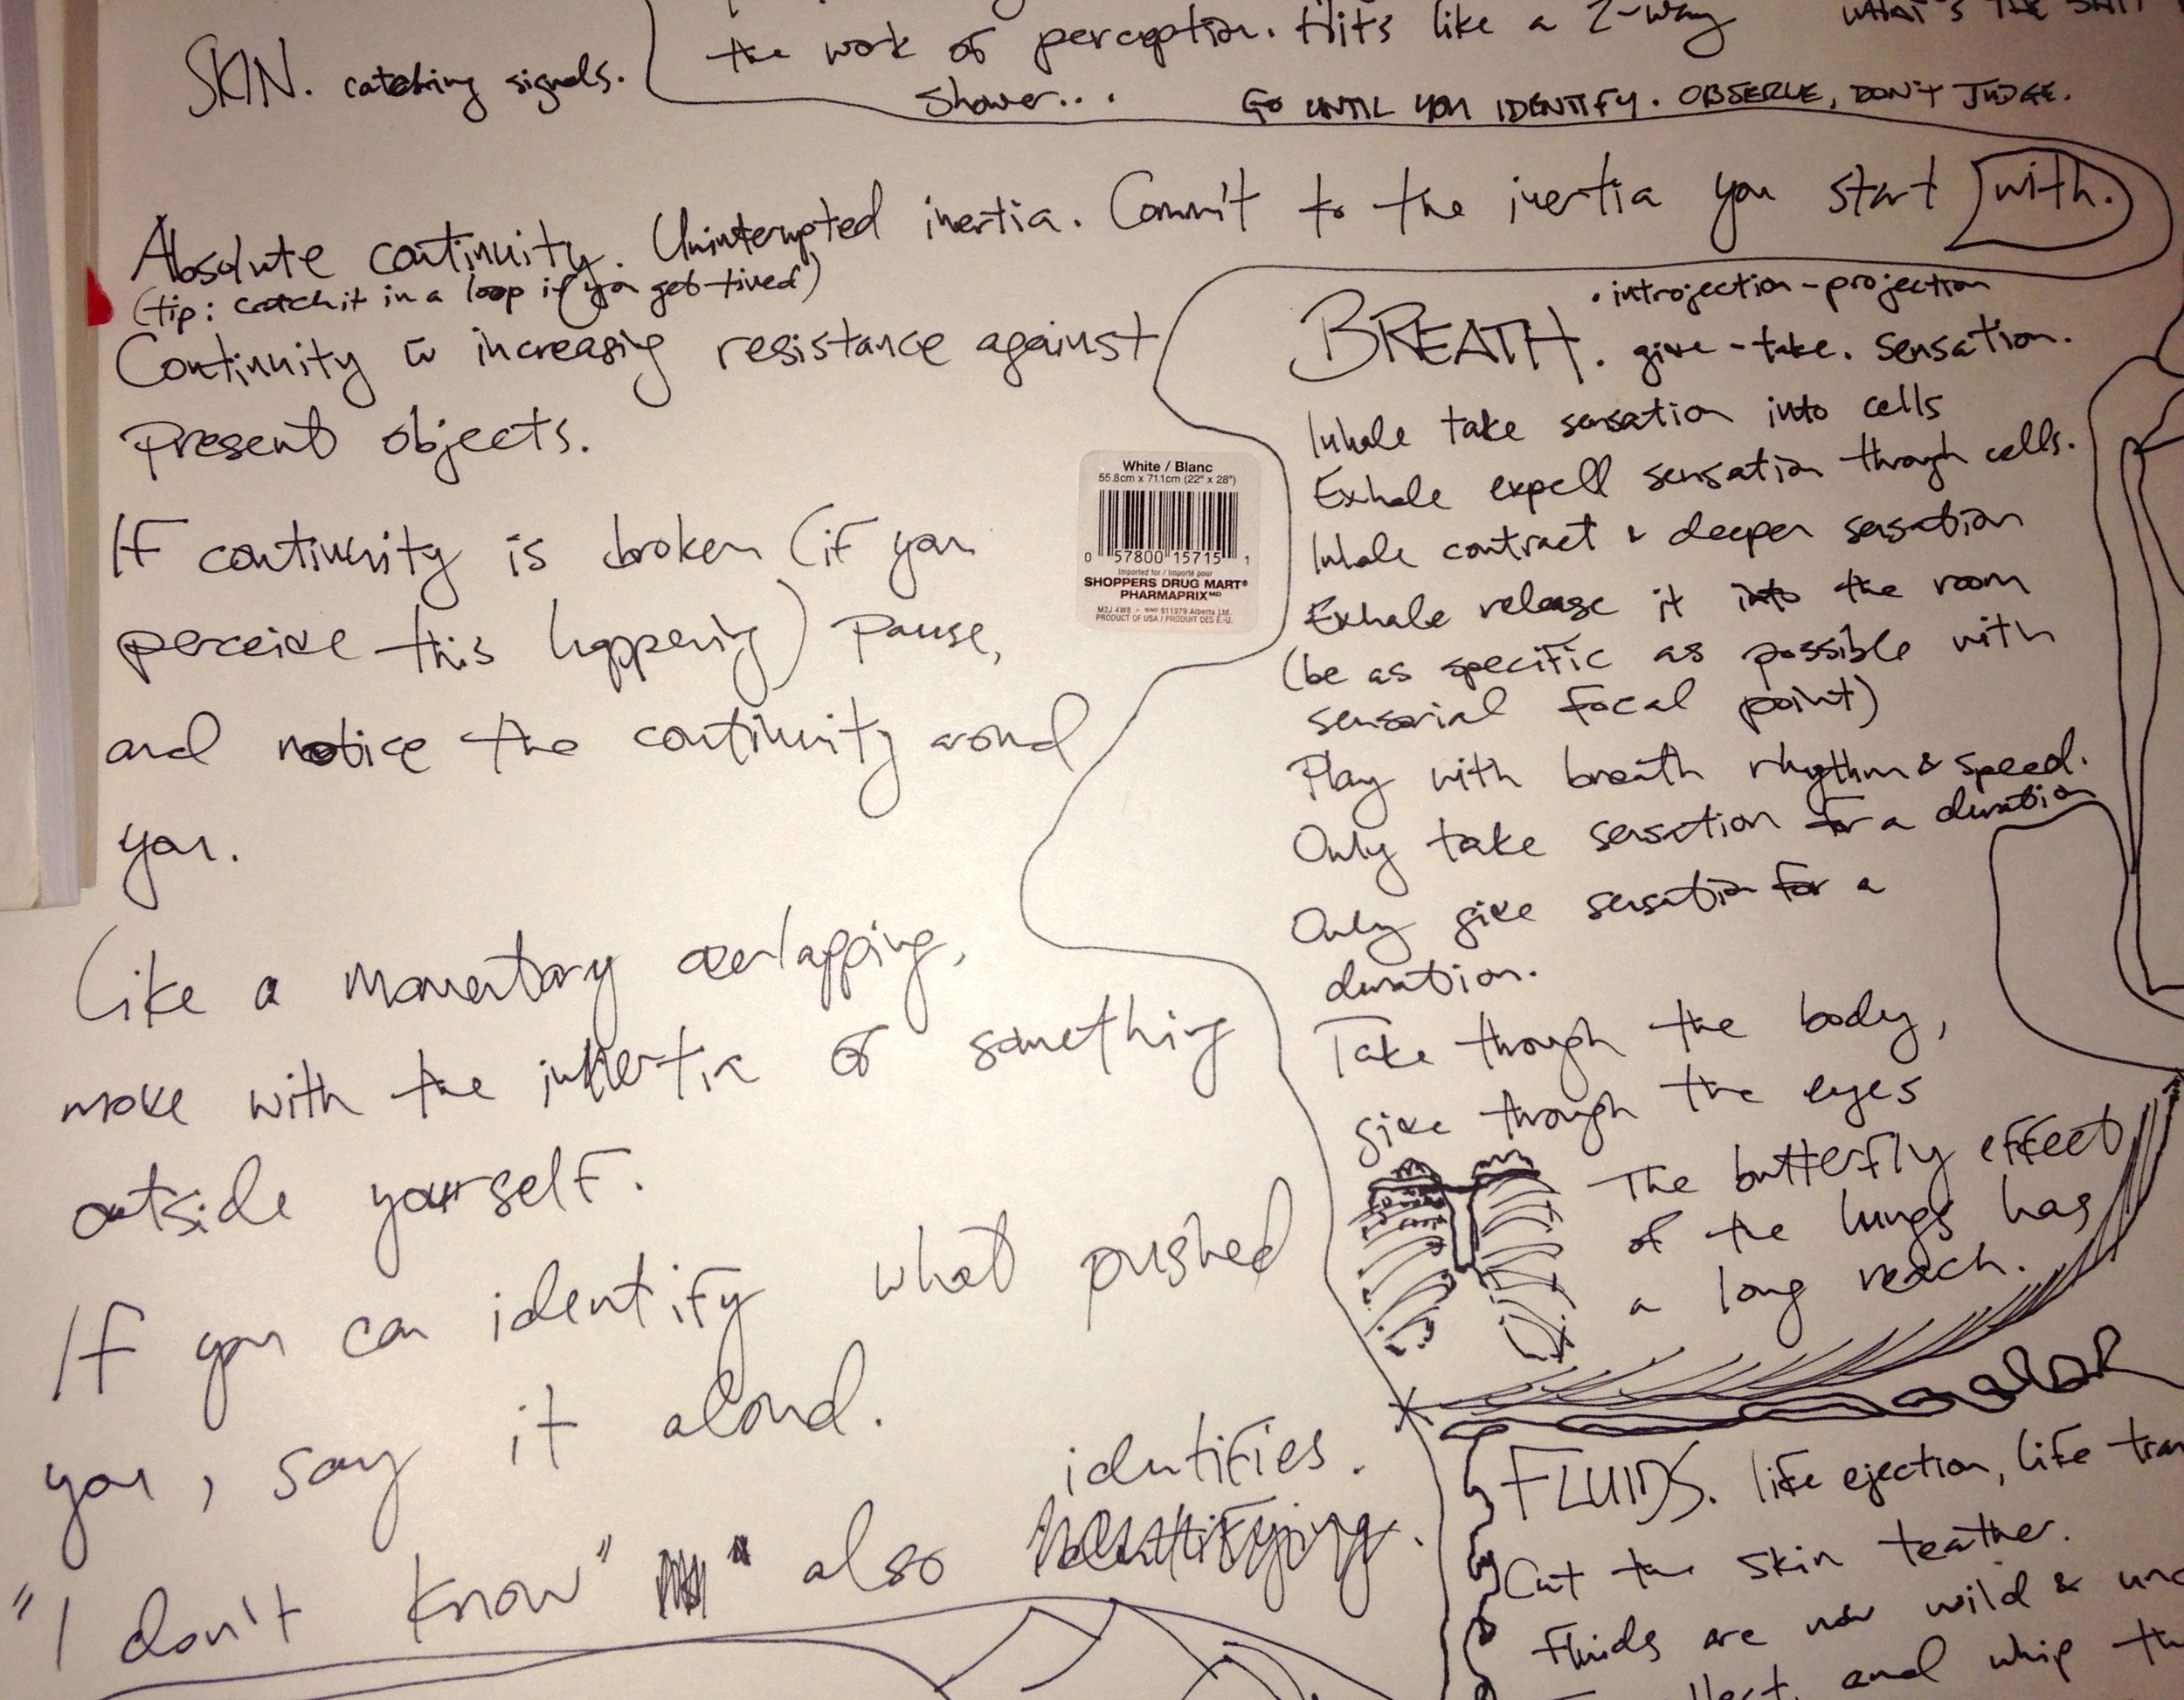 SKIN. catching signals.
the work of perception. Hits like a 2-way
shower...
WHAT'S THE
GO UNTIL YOU IDENTIFY. OBSERVE, DON'T JUDGE.
Absolute continuity. Uninterupted inertia. Commit to the inertia you start with.
(tip: catch it in a loop if you get tired)
Continuity w increasing resistance against
present objects.
If continuity is broken (if you
perceive this happening) Pause,
and notice the continuity around
you.
Like a momentary overlapping,
move with the inertia of something
outside yourself.
If you can identify what pushed
you, say it aloud.
"I don't know" also identifies.
White / Blanc
55.8cm x 71.1cm (22" x 28")
0 57800 15715 1
Imported for / Importé pour
SHOPPERS DRUG MART®
PHARMAPRIX MD
M2J 4W8 • 911979 Alberta Ltd.
PRODUCT OF USA / PRODUIT DES É.-U.
BREATH. • introjection - projection
give - take. sensation.
Inhale take sensation into cells
Exhale expell sensation through cells.
Inhale contract & deeper sensation
Exhale release it into the room
(be as specific as possible with
sensorial focal point)
Play with breath rhythm & speed.
Only take sensation for a duration
Only give sensation for a
duration.
Take through the body,
give through the eyes
The butterfly effect
of the lungs has
a long reach.
FLUIDS. life ejection, life
Cut the skin teather.
Fluids are now wild &
and whip